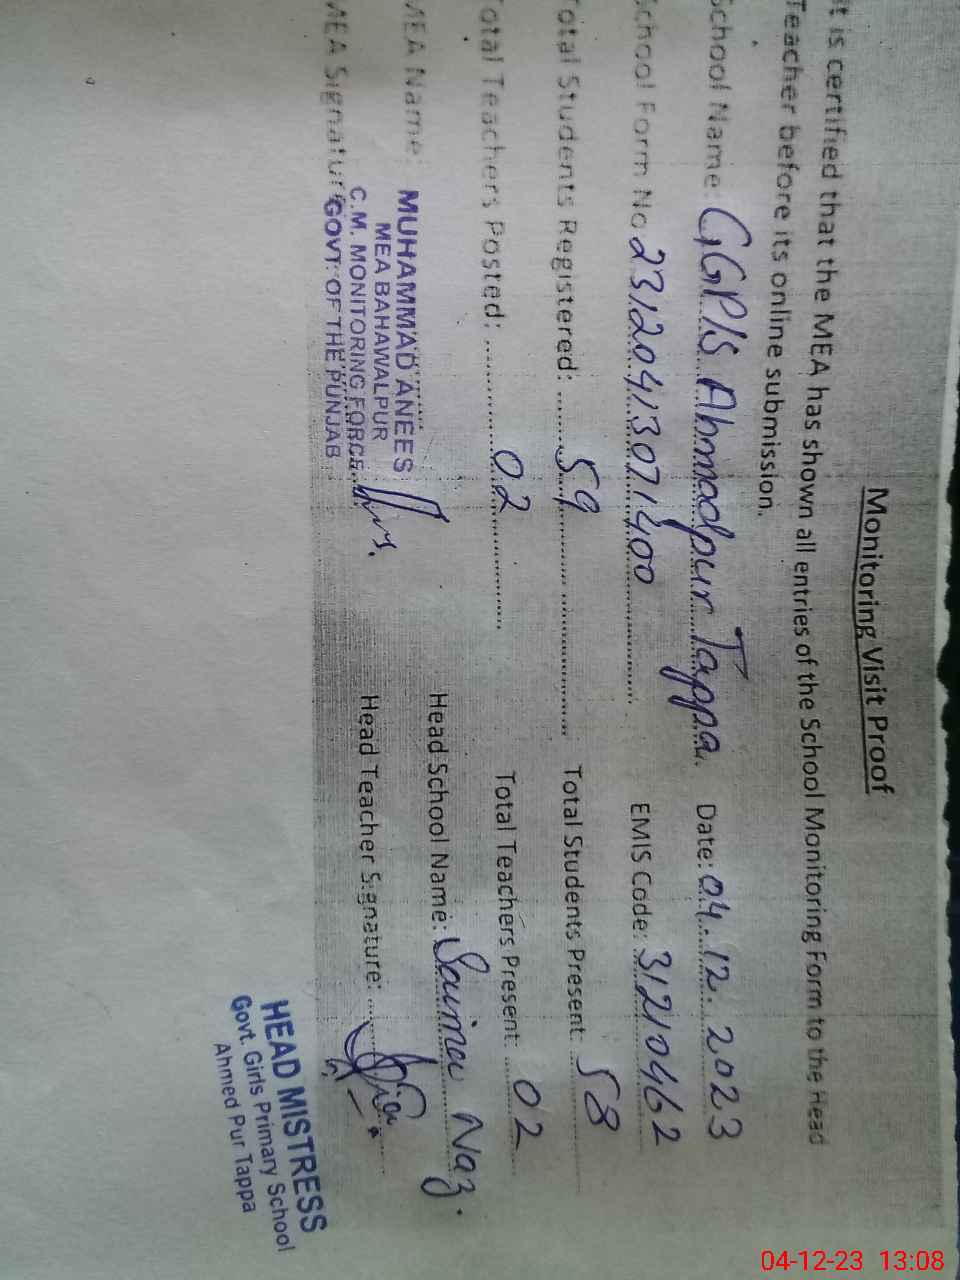 Monitoring Visit Proof
It is certified that the MEA has shown all entries of the School Monitoring Form to the Head
Teacher before its online submission.
School Name: GGP/S Ahmadpur Tappa. Date: 04.12.2023
School Form No 23120413071400 EMIS Code: 31210462
Total Students Registered: 59 Total Students Present: 58
Total Teachers Posted: 02 Total Teachers Present: 02
MEA Name: MUHAMMAD ANEES Head School Name: Saima Naz.
MEA BAHAWALPUR
C.M. MONITORING FORCE
MEA Signature GOVT: OF THE PUNJAB Head Teacher Signature:
HEAD MISTRESS
Govt. Girls Primary School
Ahmed Pur Tappa
04-12-23 13:08